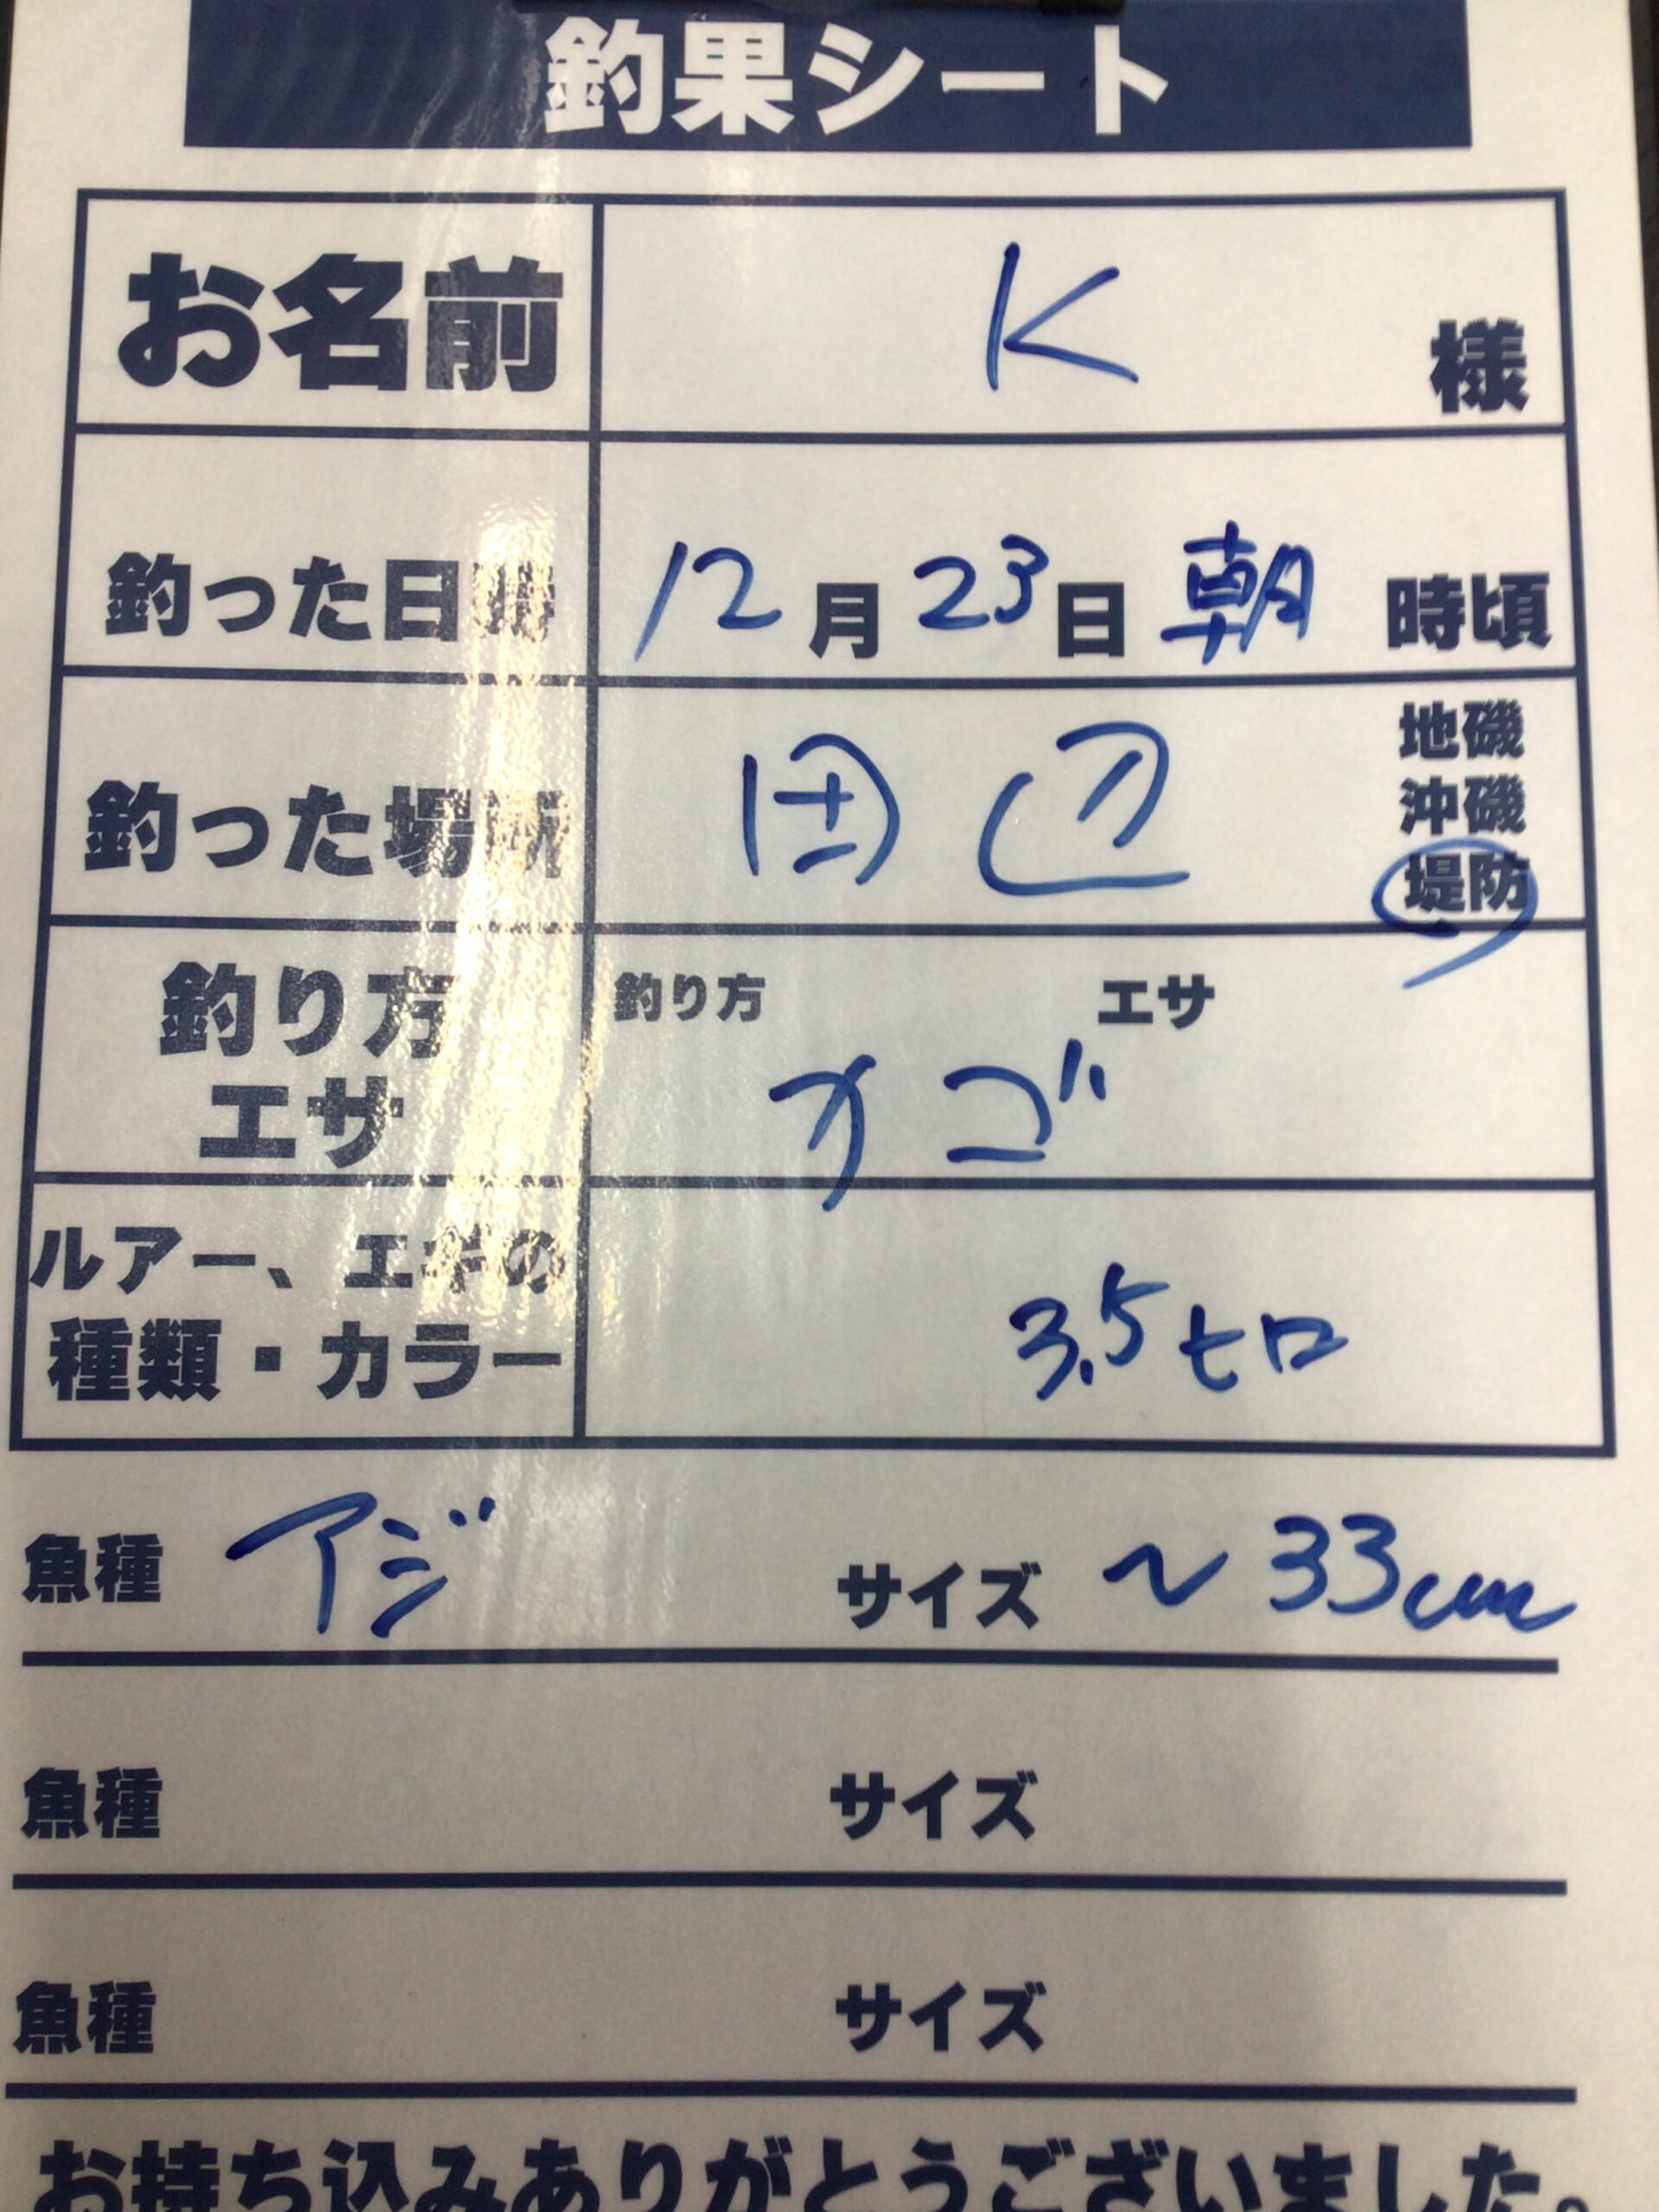 釣果シート
お名前 K 様
釣った日時 12月23日 朝 時頃
釣った場所 田辺 地磯
沖磯
堤防
釣り方 釣り方 エサ
エサ オゴ
ルアー、エギの
種類・カラー 3.5ヒロ
魚種 アジ サイズ ~33cm
魚種 サイズ
魚種 サイズ
お持ち込みありがとうございました。